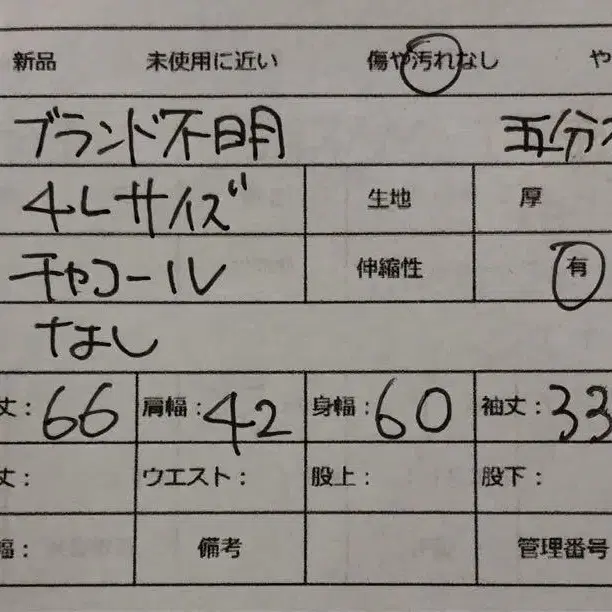 新品 未使用に近い 傷や汚れなし や
ブランド不明 五分
4Lサイズ 生地 厚
チャコール 伸縮性 有
なし
丈：66 肩幅：42 身幅：60 袖丈：33
丈： ウエスト： 股上： 股下：
幅： 備考 管理番号